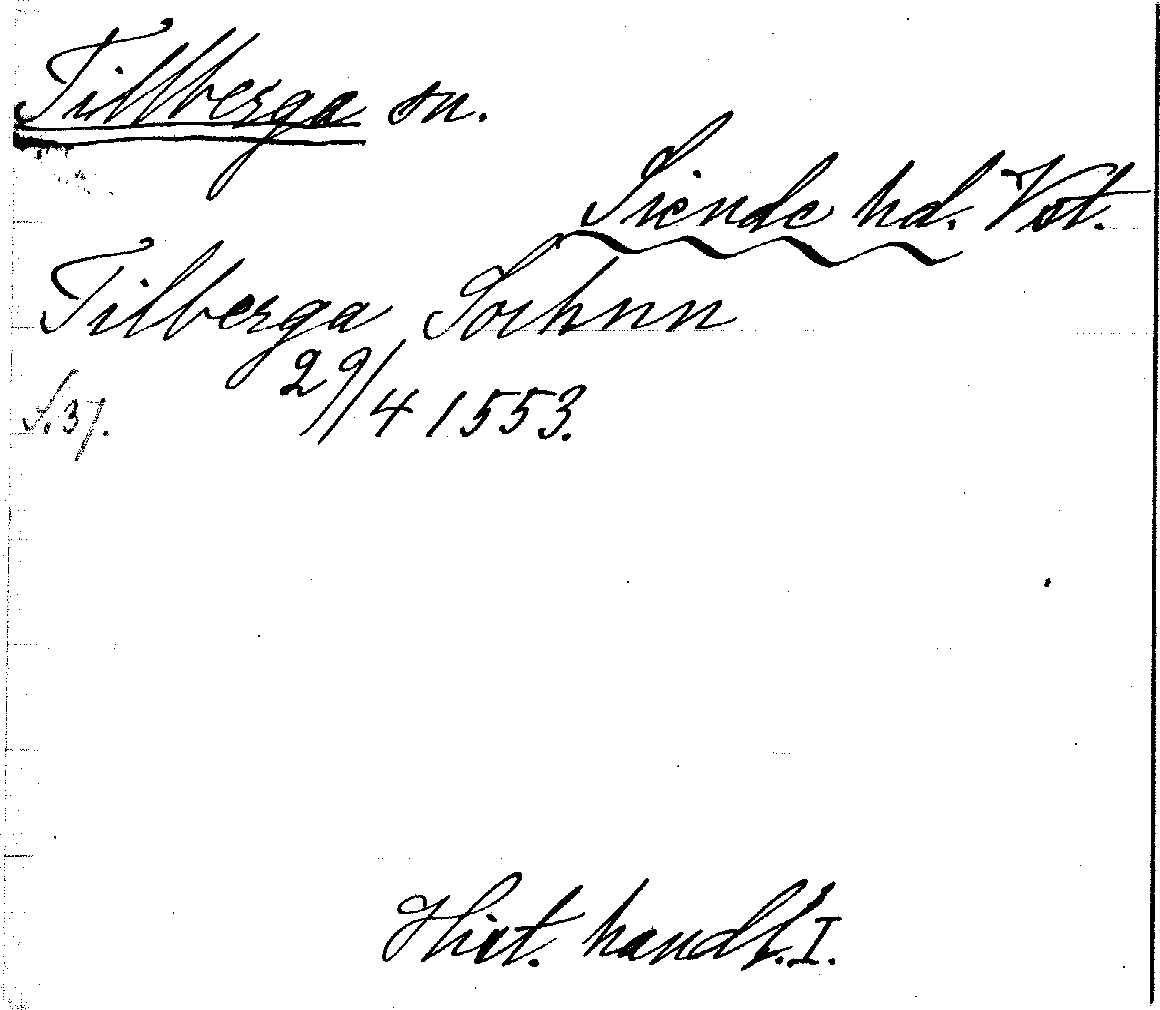 Tillberga sn.
Siende hd. Vst.
Tilberga Sochnn
29/4 1553.
S. 37.
Hist. handl. I.